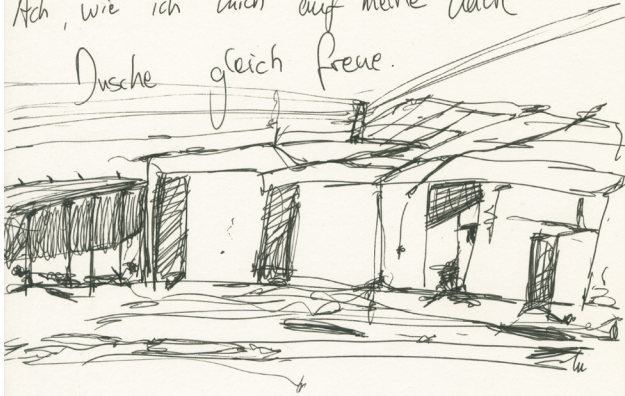 Ach, wie ich mich auf meine
Dusche gleich freue.